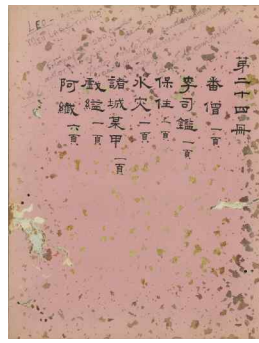 第二十四冊
番僧 一頁
李司鑑 一頁
保住 二頁
水災 一頁
諸城某甲 一頁
戲縊 一頁
阿纖 六頁